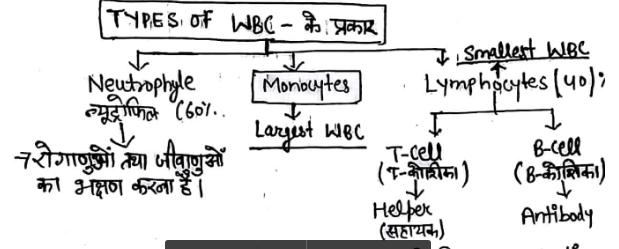 TYPES OF WBC - के प्रकार
Neutrophyle
न्यूट्रोफिल (60%.
→ रोगाणुओं तथा जीवाणुओं
का भक्षण करता है।
Monocytes
Largest WBC
Smallest WBC
Lymphocytes (40)%
T-Cell
(T-कोशिका)
Helper
(सहायक)
B-Cell
(B-कोशिका)
Antibody